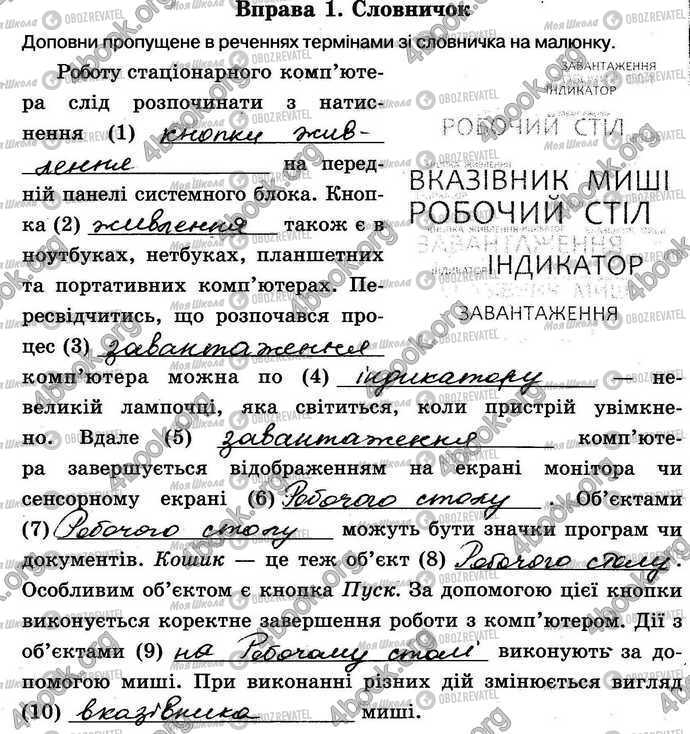 Вправа 1. Словничок
Доповни пропущене в реченнях термінами зі словничка на малюнку.
Роботу стаціонарного комп'юте-
ра слід розпочинати з натис-
нення (1) кнопки жив-
лення на перед-
ній панелі системного блока. Кноп-
ка (2) живлення також є в
ноутбуках, нетбуках, планшетних
та портативних комп'ютерах. Пе-
ресвідчитись, що розпочався про-
цес (3) завантаження
комп'ютера можна по (4) індикатору — не-
великій лампочці, яка світиться, коли пристрій увімкне-
но. Вдале (5) завантаження комп'юте-
ра завершується відображенням на екрані монітора чи
сенсорному екрані (6) Робочого столу . Об'єктами
(7) Робочого столу можуть бути значки програм чи
документів. Кошик — це теж об'єкт (8) Робочого столу.
Особливим об'єктом є кнопка Пуск. За допомогою цієї кнопки
виконується коректне завершення роботи з комп'ютером. Дії з
об'єктами (9) на Робочому столі виконують за до-
помогою миші. При виконанні різних дій змінюється вигляд
(10) вказівника миші.
ЗАВАНТАЖЕННЯ
ІНДИКАТОР
РОБОЧИЙ СТІЛ
ВКАЗІВНИК МИШІ
РОБОЧИЙ СТІЛ
ЗАВАНТАЖЕННЯ
ІНДИКАТОР
ЗАВАНТАЖЕННЯ